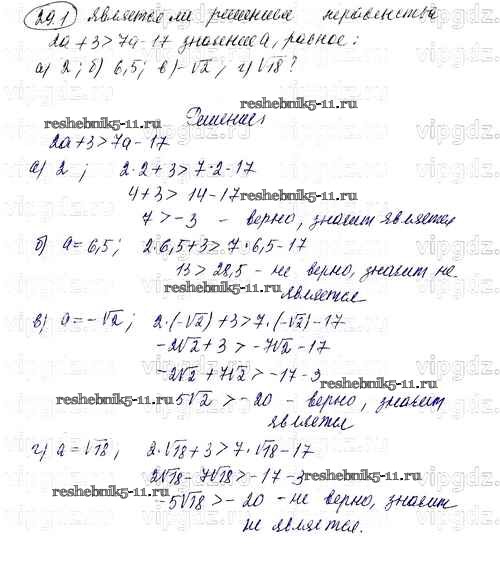 29.1 Является ли решением неравенства
2a+3>7a-17 значение a, равное:
а) 2; б) 6,5; в) -√2; г) √18?
reshebnik5-11.ru
Решение,
2a+3>7a-17
reshebnik5-11.ru
а) 2; 2·2+3>7·2-17
4+3> 14-17
reshebnik5-11.ru
7>-3 - верно, значит является
б) a=6,5; 2·6,5+3>7·6,5-17
13>28,5 - не верно, значит не
является
reshebnik5-11.ru
в) a=-√2; 2·(-√2)+3>7·(-√2)-17
-2√2+3>-7√2-17
-2√2+7√2>-17-3
5√2>-20 - верно, значит
является
reshebnik5-11.ru
г) a=√18; 2·√18+3>7·√18-17
reshebnik5-11.ru
2√18-7√18>-17-3
-5√18>-20 - не верно, значит
не является.
reshebnik5-11.ru
vipgdz.com